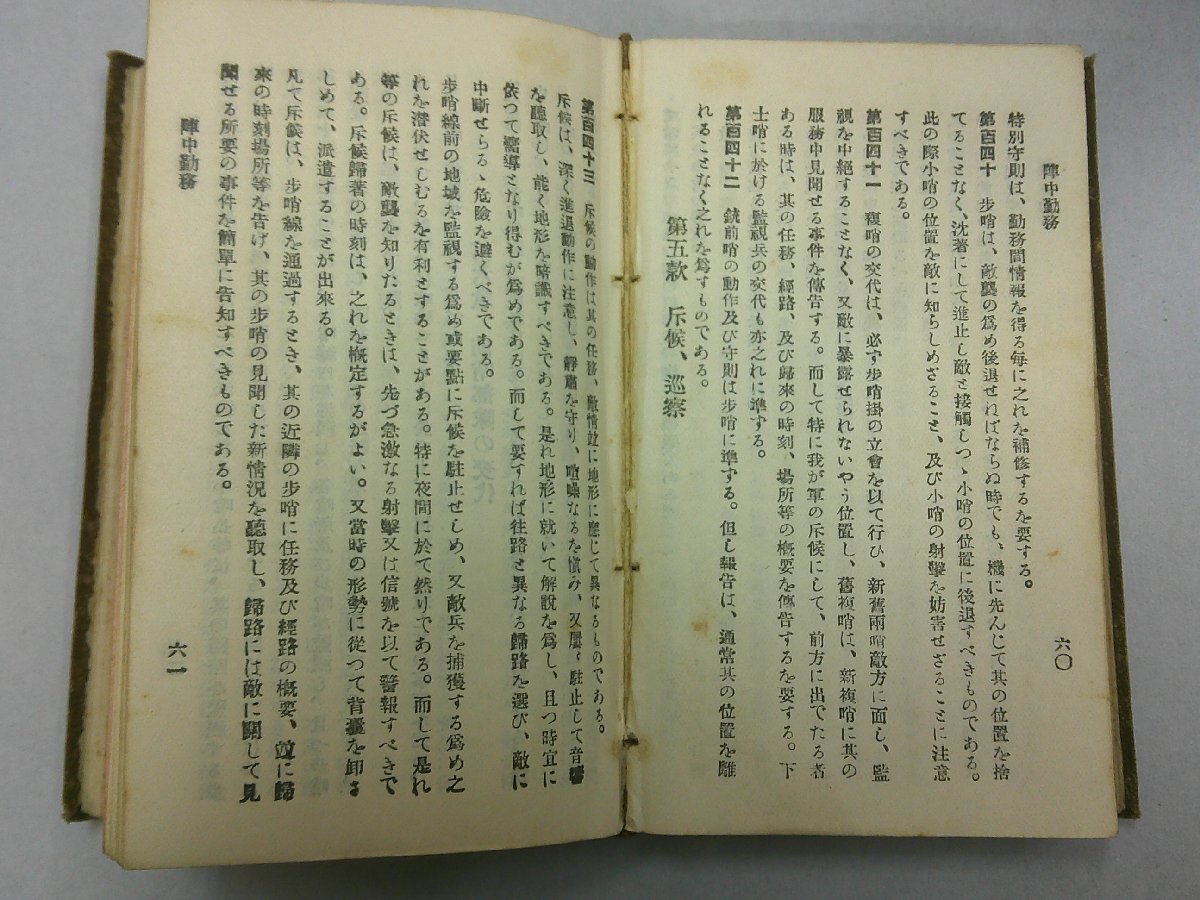 陣中勤務
六〇
特別守則は、勤務間情報を得る毎に之れを補修するを要する。
第百四十 步哨は、敵襲の爲め後退せねばならぬ時でも、機に先んじて其の位置を捨
てることなく、沈著にして進止し敵と接觸しつゝ小哨の位置に後退すべきものである。
此の際小哨の位置を敵に知らしめざること、及び小哨の射擊を妨害せざることに注意
すべきである。
第百四十一 複哨の交代は、必ず步哨掛の立會を以て行ひ、新舊兩哨敵方に面し、監
視を中絕することなく、又敵に暴露せられないやう位置し、舊複哨は、新複哨に其の
服務中見聞せる事件を傳告する。而して特に我が軍の斥候にして、前方に出でたる者
ある時は、其の任務、經路、及び歸來の時刻、場所等の槪要を傳告するを要する。下
士哨に於ける監視兵の交代も亦之れに準ずる。
第百四十二 銃前哨の動作及び守則は步哨に準ずる。但し報告は、通常其の位置を離
れることなく之れを爲すものである。
第五款 斥候、巡察
第百四十三 斥候の動作は其の任務、敵情竝に地形に應じて異なるものである。
斥候は、深く進退動作に注意し、靜肅を守り、喧噪なるを愼み、又屢〻駐止して音響
を聽取し、能く地形を暗識すべきである。是れ地形に就いて解說を爲し、且つ時宜に
依つて嚮導となり得むが爲めである。而して要すれば往路と異なる歸路を選び、敵に
中斷せらるゝ危險を避くべきである。
步哨線前の地域を監視する爲め或要點に斥候を駐止せしめ、又敵兵を捕獲する爲め之
れを潜伏せしむるを有利とすることがある。特に夜間に於て然りである。而して是れ
等の斥候は、敵襲を知りたるときは、先づ急激なる射擊又は信號を以て警報すべきで
ある。斥候歸著の時刻は、之れを槪定するがよい。又當時の形勢に從つて背囊を卸さ
しめて、派遣することが出來る。
凡て斥候は、步哨線を通過するとき、其の近隣の步哨に任務及び經路の槪要、竝に歸
來の時刻場所等を告げ、其の步哨の見聞した新情況を聽取し、歸路には敵に關して見
聞せる所要の事件を簡單に告知すべきものである。
陣中勤務
六一